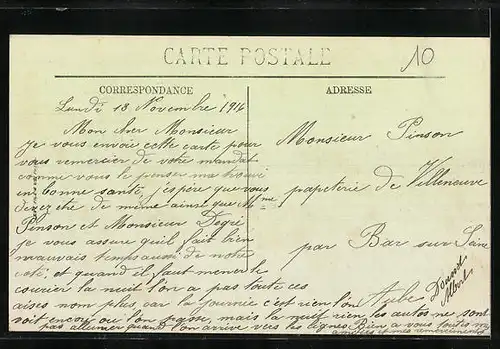 CARTE POSTALE
10
CORRESPONDANCE
ADRESSE
Lundi 18 Novembre 1914
Mon cher Monsieur
Je vous envoie cette carte pour
vous remercier de votre mandat
comme vous le penser ma trouvé
en bonne santé, j'espère que vous
devez etre de même ainsi que Mme
Pinson et Monsieur Degré
je vous assure quil fait bien
mauvais temps aussi de notre
coté, et quand il faut mener le
courier la nuit l'on a pas toute ces
aises nom plus, car la journée c'est rien l'on
voit encore ou l'on passe, mais la nuit rien les autos ne sont
pas allumer quand l'on arrive vers les lignes. Bien a vous toutes mes
amitiés et mes remerciements
Monsieur Pinson
papeterie de Villeneuve
par Bar sur Seine
Aube
Albert